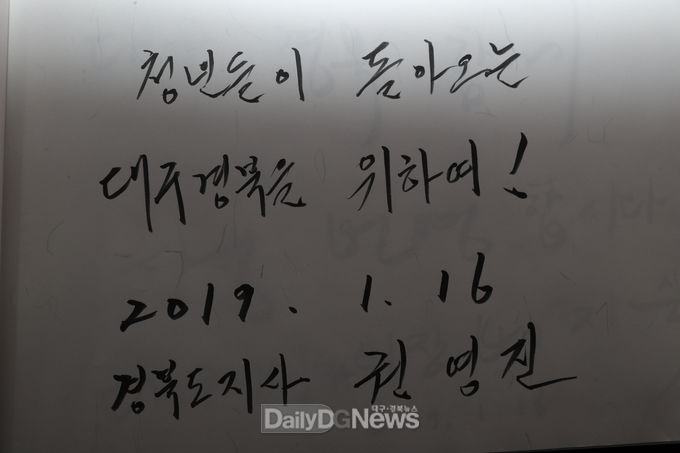 청년들이 돌아오는
대구경북을 위하여!
2019. 1. 16
경북도지사 권영진
대구·경북뉴스
DailyDGNews